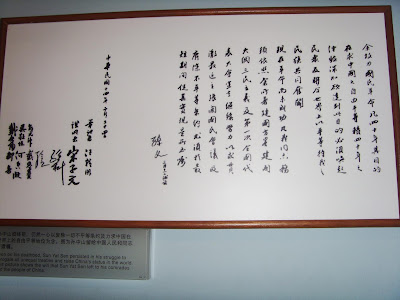 余致力國民革命凡四十年其目的
在求中國之自由平等積四十年之
經驗深知欲達到此目的必須喚起
民眾及聯合世界上以平等待我之
民族共同奮鬥
現在革命尚未成功凡我同志務
須依照余所著建國方略建國
大綱三民主義及第一次全國代
表大會宣言繼續努力以求貫
徹最近主張開國民會議及
廢除不平等條約尤須於最
短期間促其實現是所至囑
孫文
中華民國十四年二月二十四日
筆記者 汪精衛
證明者 宋子文
孫科
on his deathbed, Sun Yat Sen persisted in his struggle to
all unequal treaties and raise China's status in the world
picture shows the will that Sun Yat Sen left to his comrades
people of China